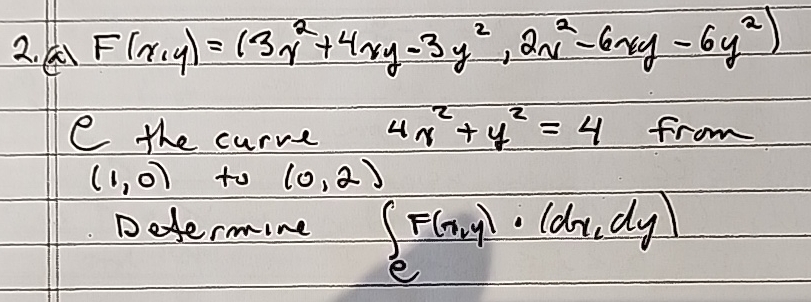 2. a) F(x,y) = (3x²+4xy-3y², 2x²-6xy-6y²)
C the curve 4x²+y² = 4 from
(1,0) to (0,2)
. Determine ∫_C F(x,y) · (dx, dy)